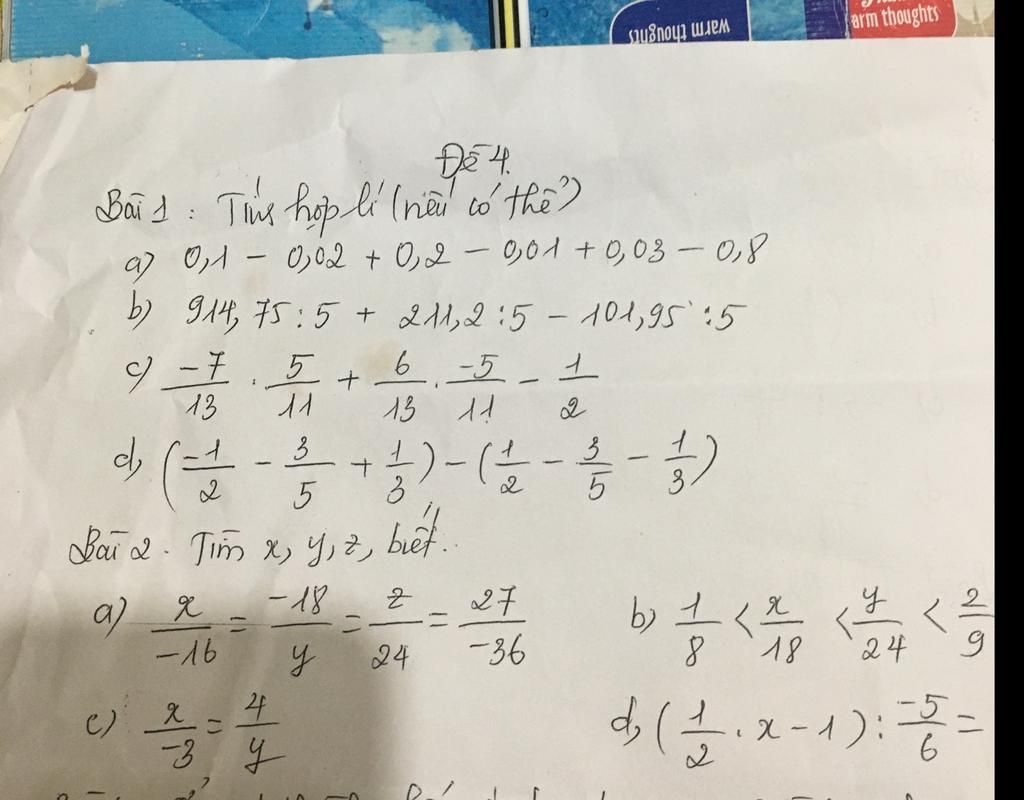 warm thoughts
arm thoughts
Đề 4.
Bài 1 : Tính hợp lí (nếu có thể)
a) 0,1 - 0,02 + 0,2 - 0,01 + 0,03 - 0,8
b) 914,75 : 5 + 211,2 : 5 - 101,95 : 5
c) -7/13 . 5/11 + 6/13 . -5/11 - 1/2
d, (-1/2 - 3/5 + 1/3) - (1/2 - 3/5 - 1/3)
Bài 2. Tìm x, y, z, biết..
a) x/-16 = -18/y = z/24 = 27/-36 b) 1/8 < x/18 < y/24 < 2/9
c) x/-3 = 4/y d, (1/2 . x - 1) : -5/6 =